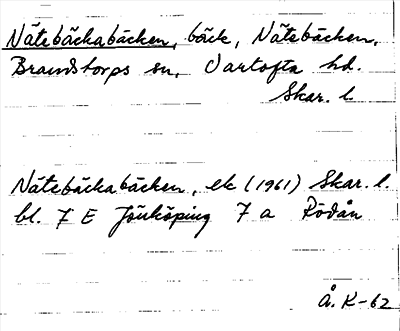 Nätebäckabäcken, bäck, Nätebäcken,
Brandstorps sn, Vartofta hd.
Skar. l
Nätebäckabäcken, ek (1961) Skar. l.
bl. 7 E Jönköping 7 a Rödån
Å. K-62